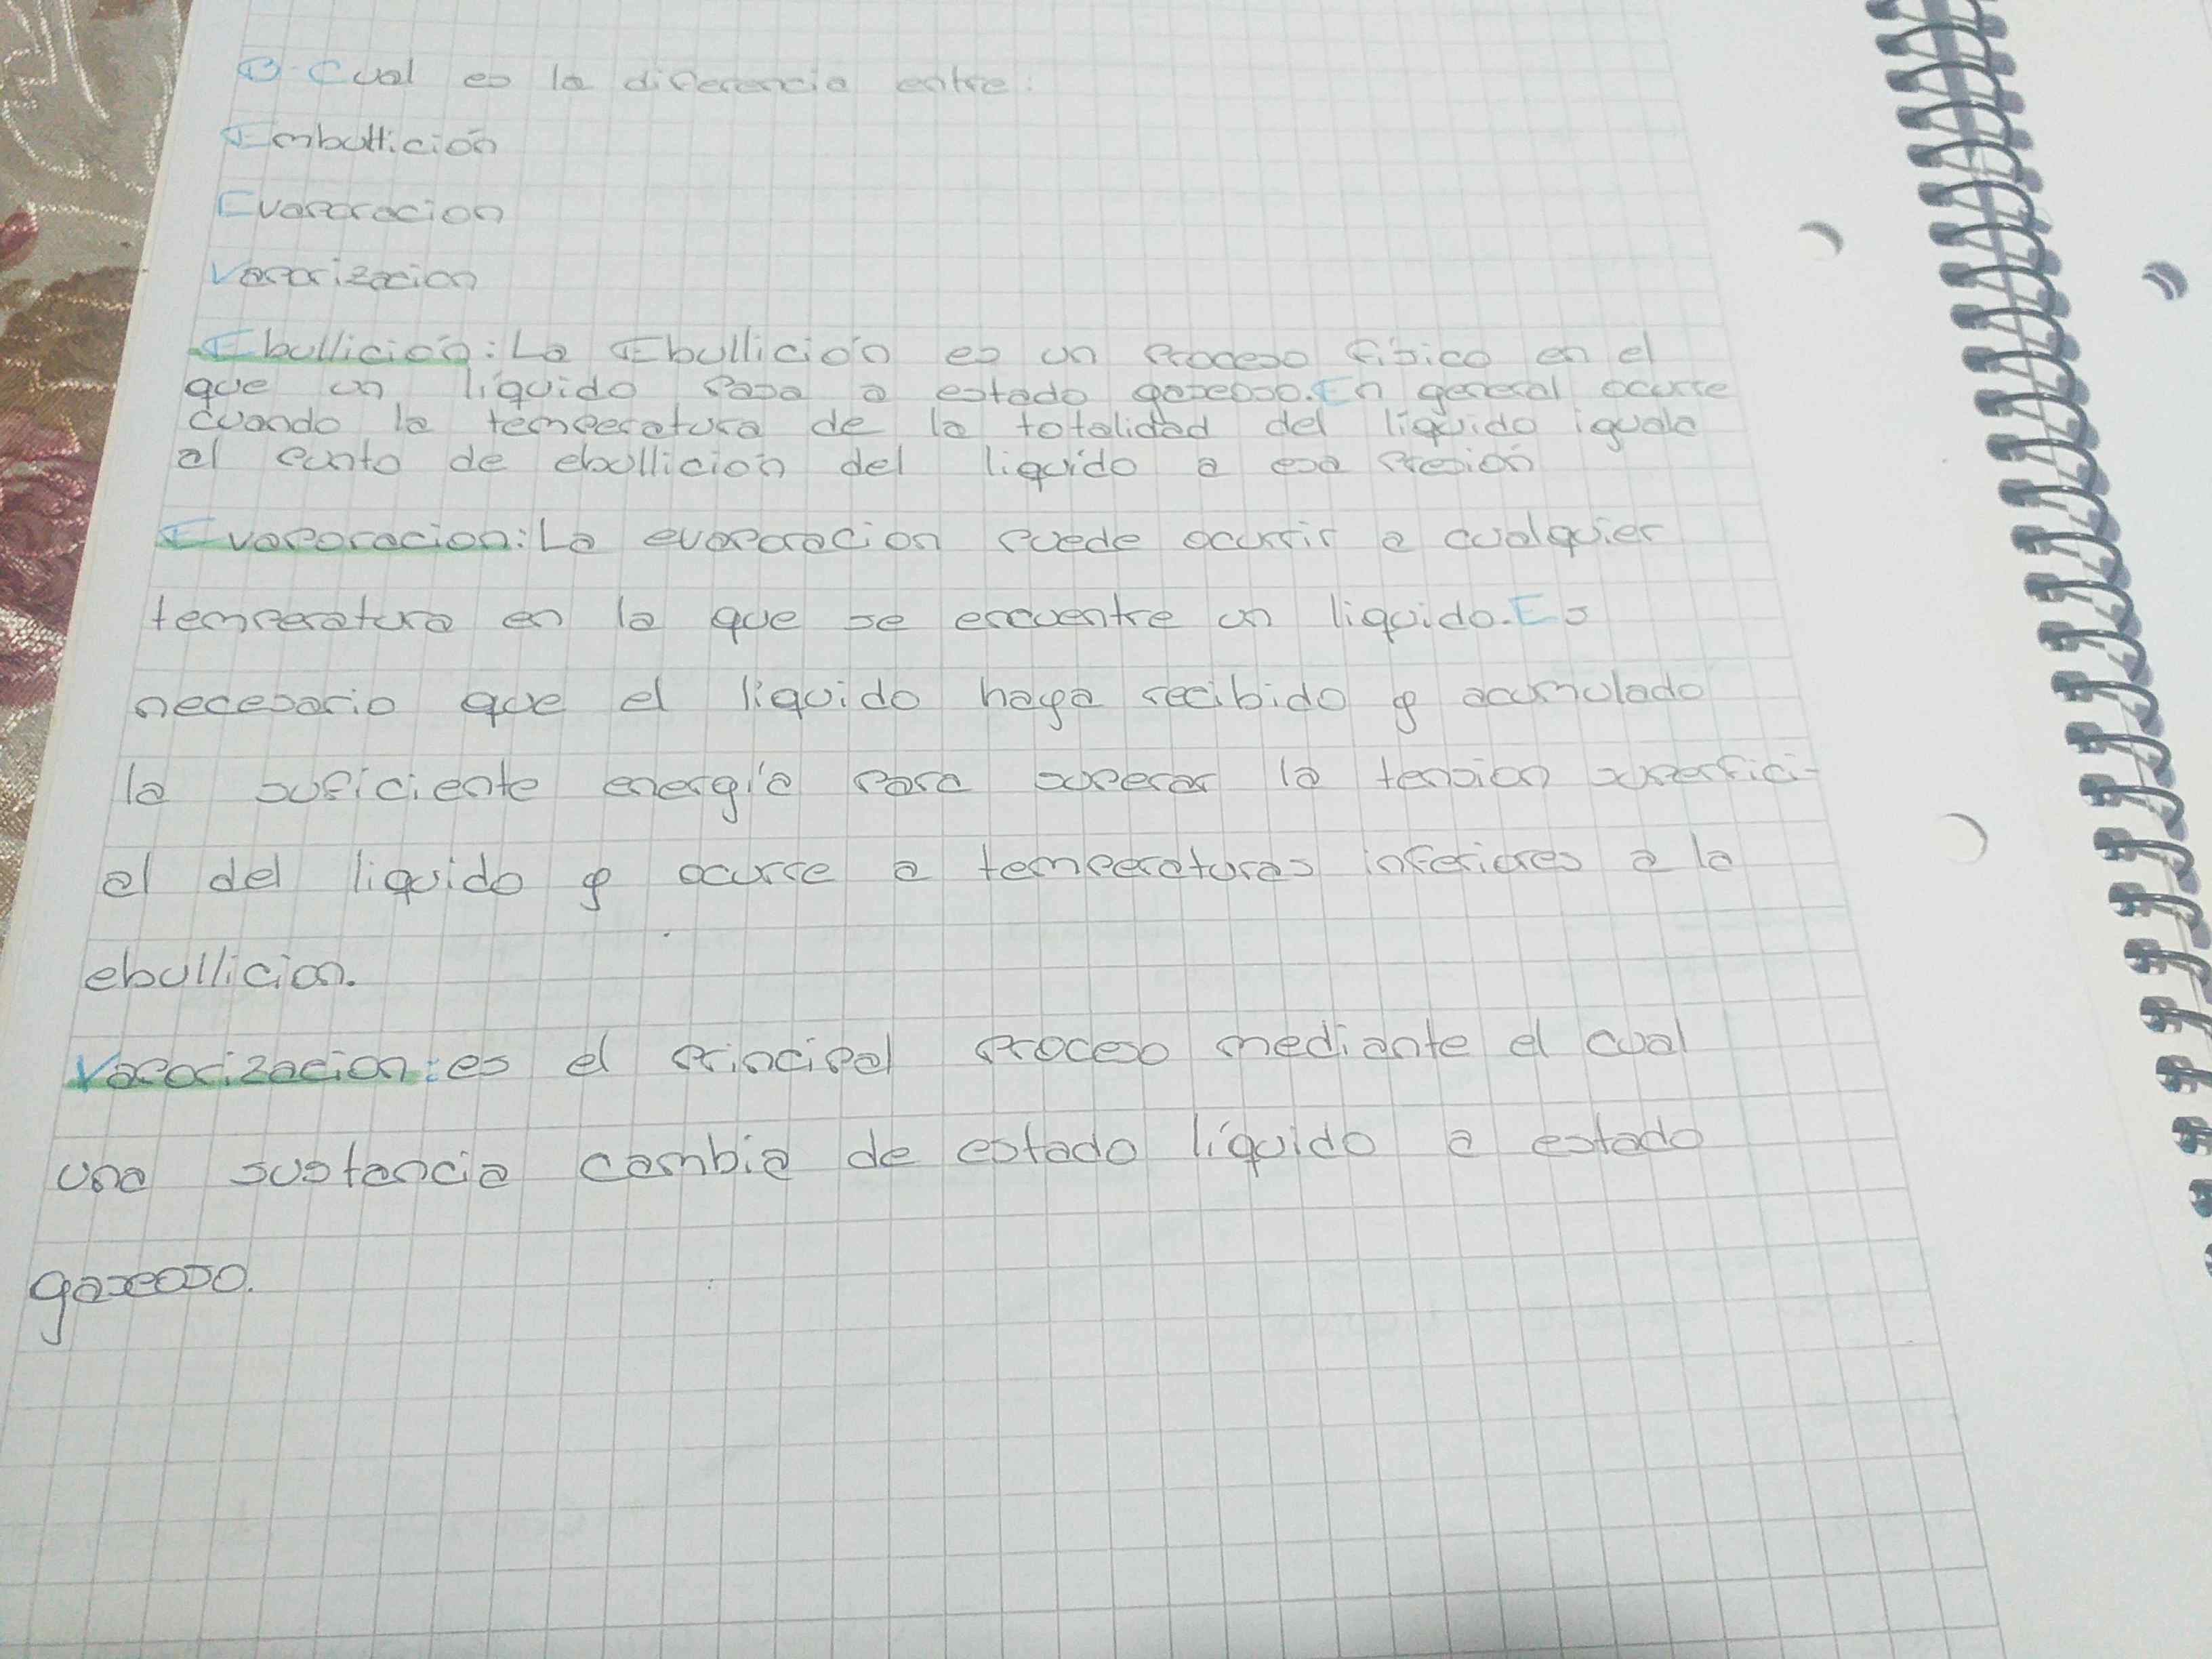 B. Cual es la diferencia entre:
Embuttición
Evaporacion
Vaporizacion
Ebullición: La Ebullición es un proceso físico en el
que un líquido pasa a estado gaseoso. En general ocurre
cuando la temperatura de la totalidad del líquido iguala
al punto de ebullición del liquido a esa presión
Evaporacion: La evaporacion puede ocurrir a cualquier
temperatura en la que se encuentre un liquido. Es
necesario que el liquido haya recibido y acumulado
la suficiente energía para superar la tension superfici-
al del liquido y ocurre a temperaturas inferiores a la
ebullicion.
Vaporizacion: es el principal proceso mediante el cual
una sustancia cambia de estado líquido a estado
gaseoso.